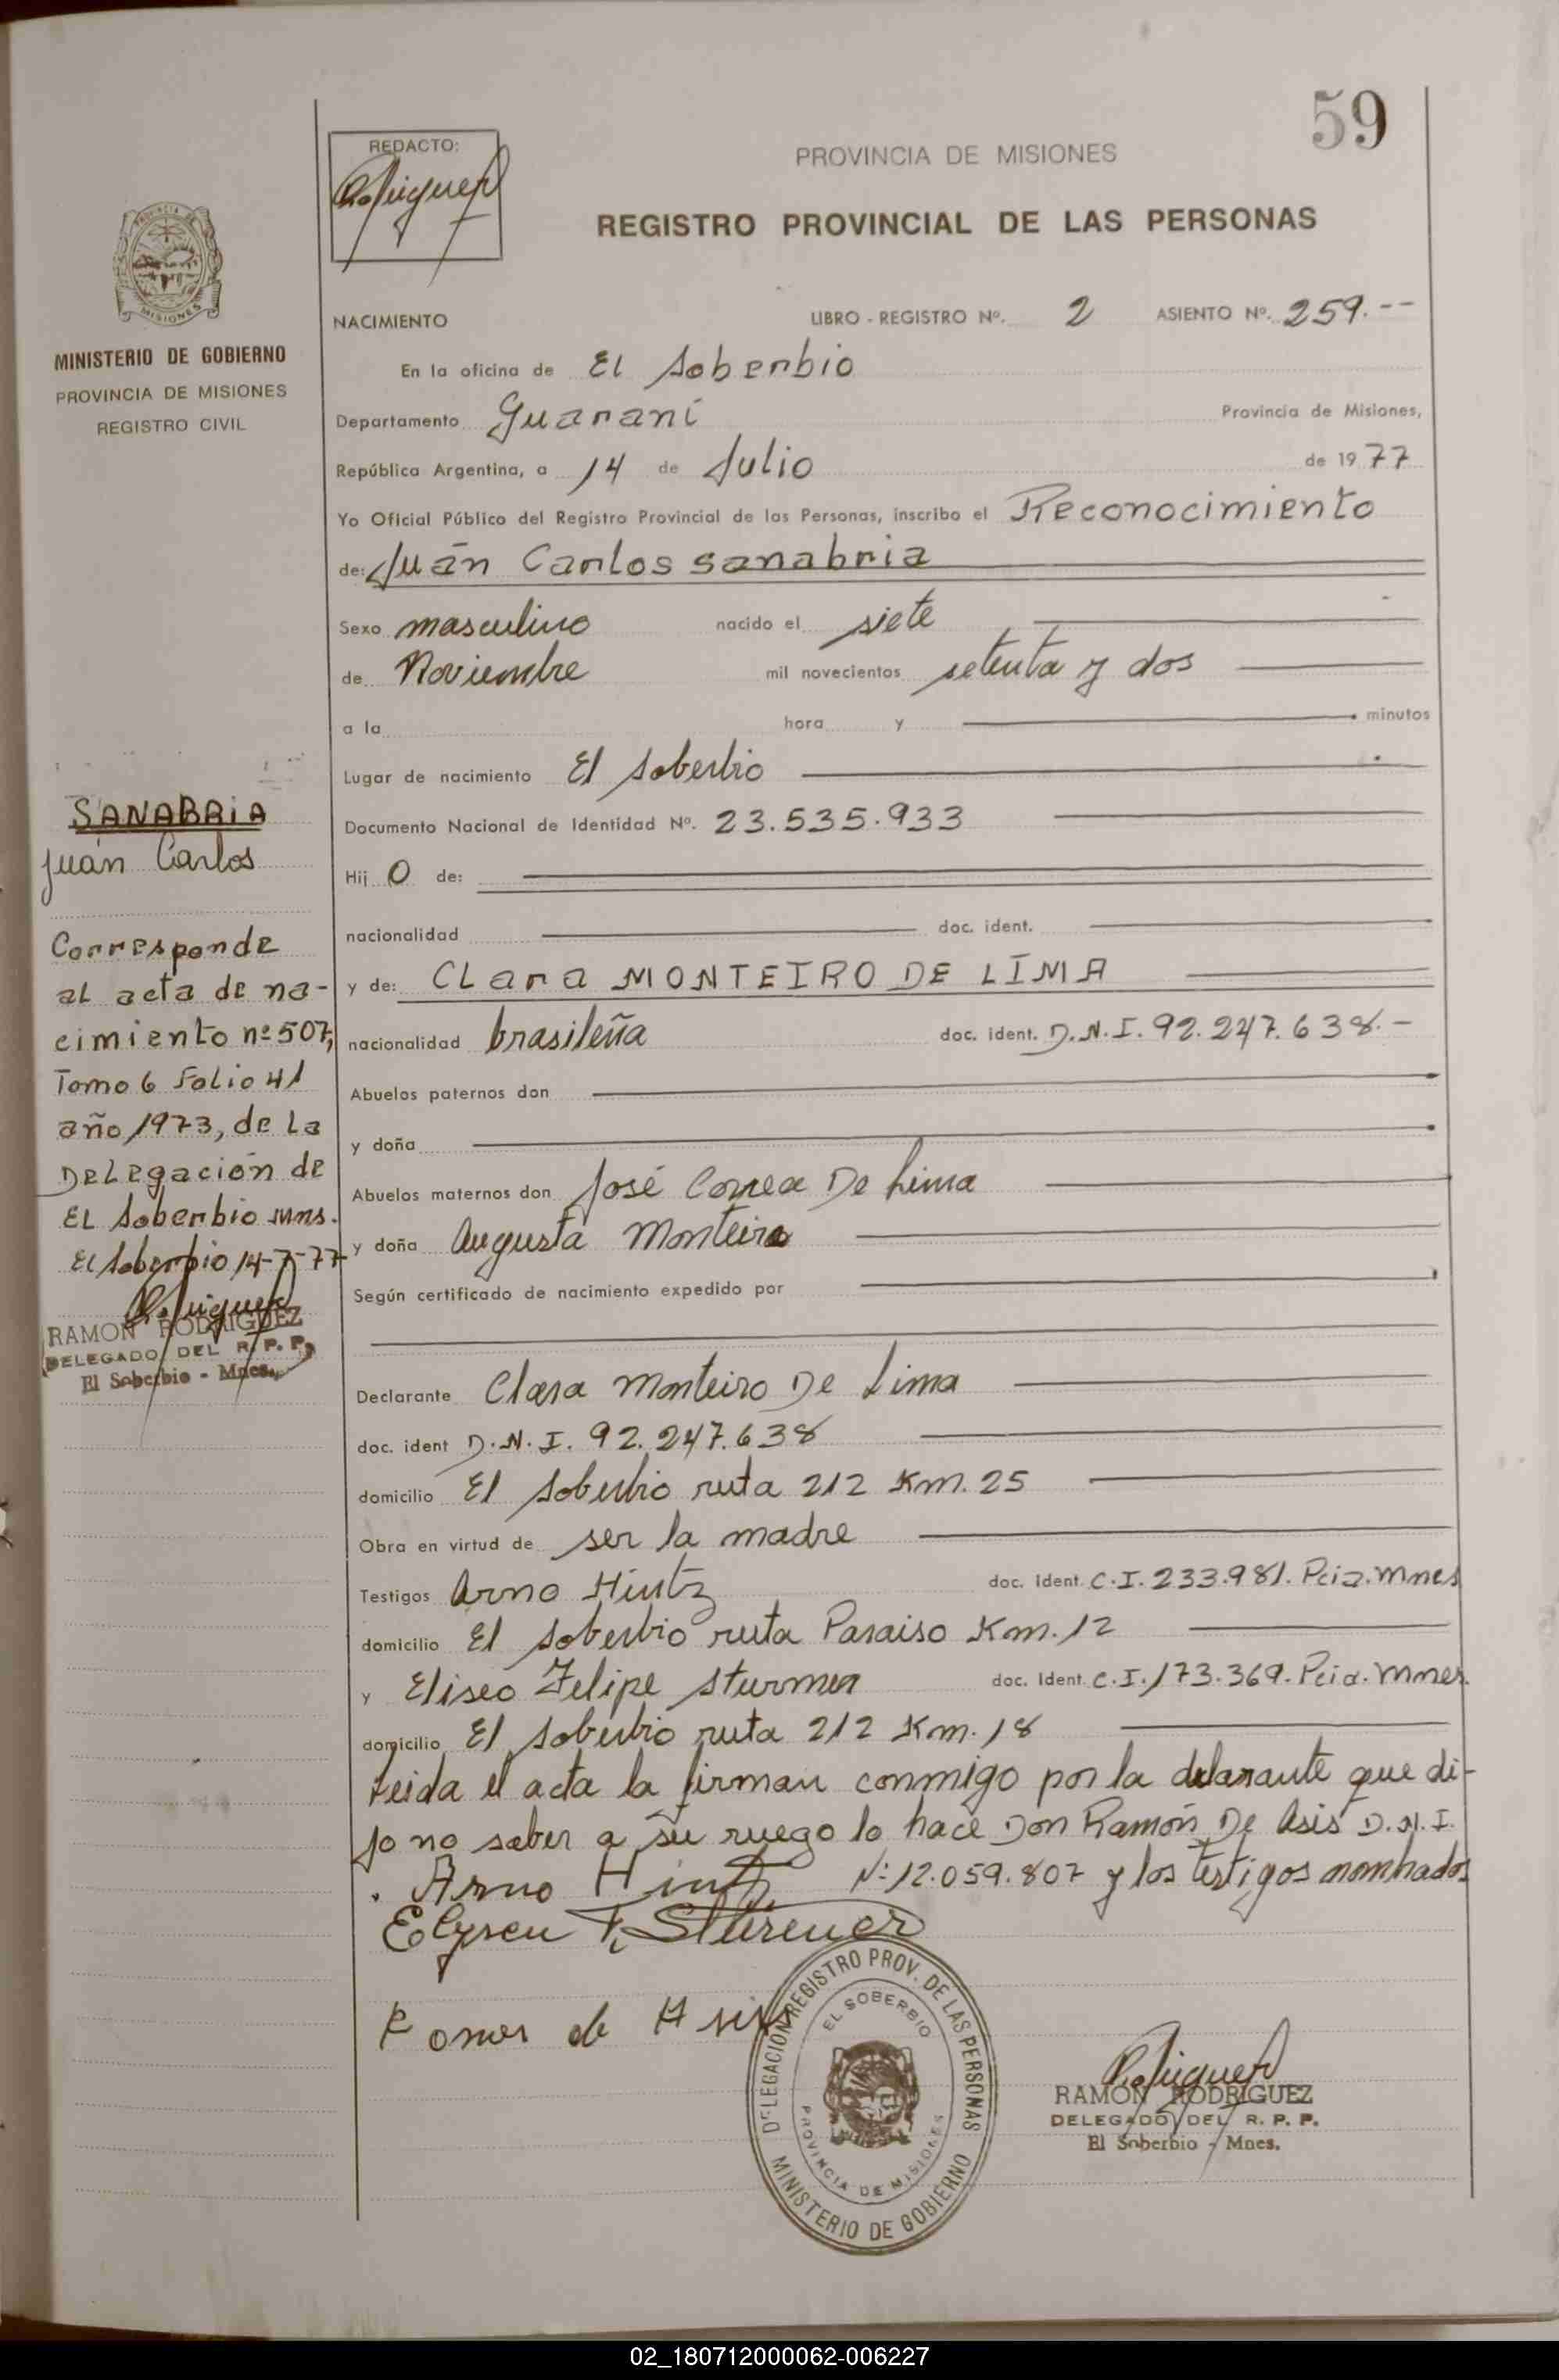 59
REDACTO:
PROVINCIA DE MISIONES
REGISTRO PROVINCIAL DE LAS PERSONAS
PROVINCIA DE
MISIONES
MINISTERIO DE GOBIERNO
PROVINCIA DE MISIONES
REGISTRO CIVIL
NACIMIENTO LIBRO - REGISTRO Nº. 2 ASIENTO Nº. 259.--
En la oficina de El Soberbio
Departamento Guaraní Provincia de Misiones,
República Argentina, a 14 de Julio de 1977
Yo Oficial Público del Registro Provincial de las Personas, inscribo el Reconocimiento
de: Juán Carlos Sanabria
Sexo masculino nacido el siete
de Noviembre mil novecientos setenta y dos
a la hora y minutos
Lugar de nacimiento El Soberbio
Documento Nacional de Identidad Nº. 23.535.933
Hij O de:
nacionalidad doc. ident.
y de: Clara MONTEIRO DE LIMA
nacionalidad brasileña doc. ident. D.N.I. 92.247.638.-
Abuelos paternos don
y doña
Abuelos maternos don José Correa De Lima
y doña Augusta Monteiro
Según certificado de nacimiento expedido por
Declarante Clara Monteiro De Lima
doc. ident D.N.I. 92.247.638
domicilio El Soberbio ruta 212 Km. 25
Obra en virtud de ser la madre
Testigos Arno Hintz doc. ident. C.I. 233.981. Pcia. Mnes
domicilio El Soberbio ruta Paraiso Km. 12
y Eliseo Felipe Sturmer doc. ident. C.I. 173.369. Pcia. Mnes.
domicilio El Soberbio ruta 212 Km. 18
Leida el acta la firman conmigo por la delarante que di-
jo no saber a su ruego lo hace Don Ramón De Asis D.N.I.
Nº 12.059.807 y los testigos nombrados
Arno Hintz
Elyseu F. Stürmer
Romon de Asis
SANABRIA
Juán Carlos
Corresponde
al acta de na-
cimiento nº 507,
Tomo 6 Folio 41
año 1973, de la
Delegación de
El Soberbio Mns.
El Soberbio 14-7-77
RAMON RODRIGUEZ
DELEGADO DEL R. P. P.
El Soberbio - Mnes.
DELEGACION REGISTRO PROV. DE LAS PERSONAS
EL SOBERBIO
PROVINCIA DE MISIONES
MINISTERIO DE GOBIERNO
RAMON RODRIGUEZ
DELEGADO DEL R. P. P.
El Soberbio - Mnes.
02_180712000062-006227